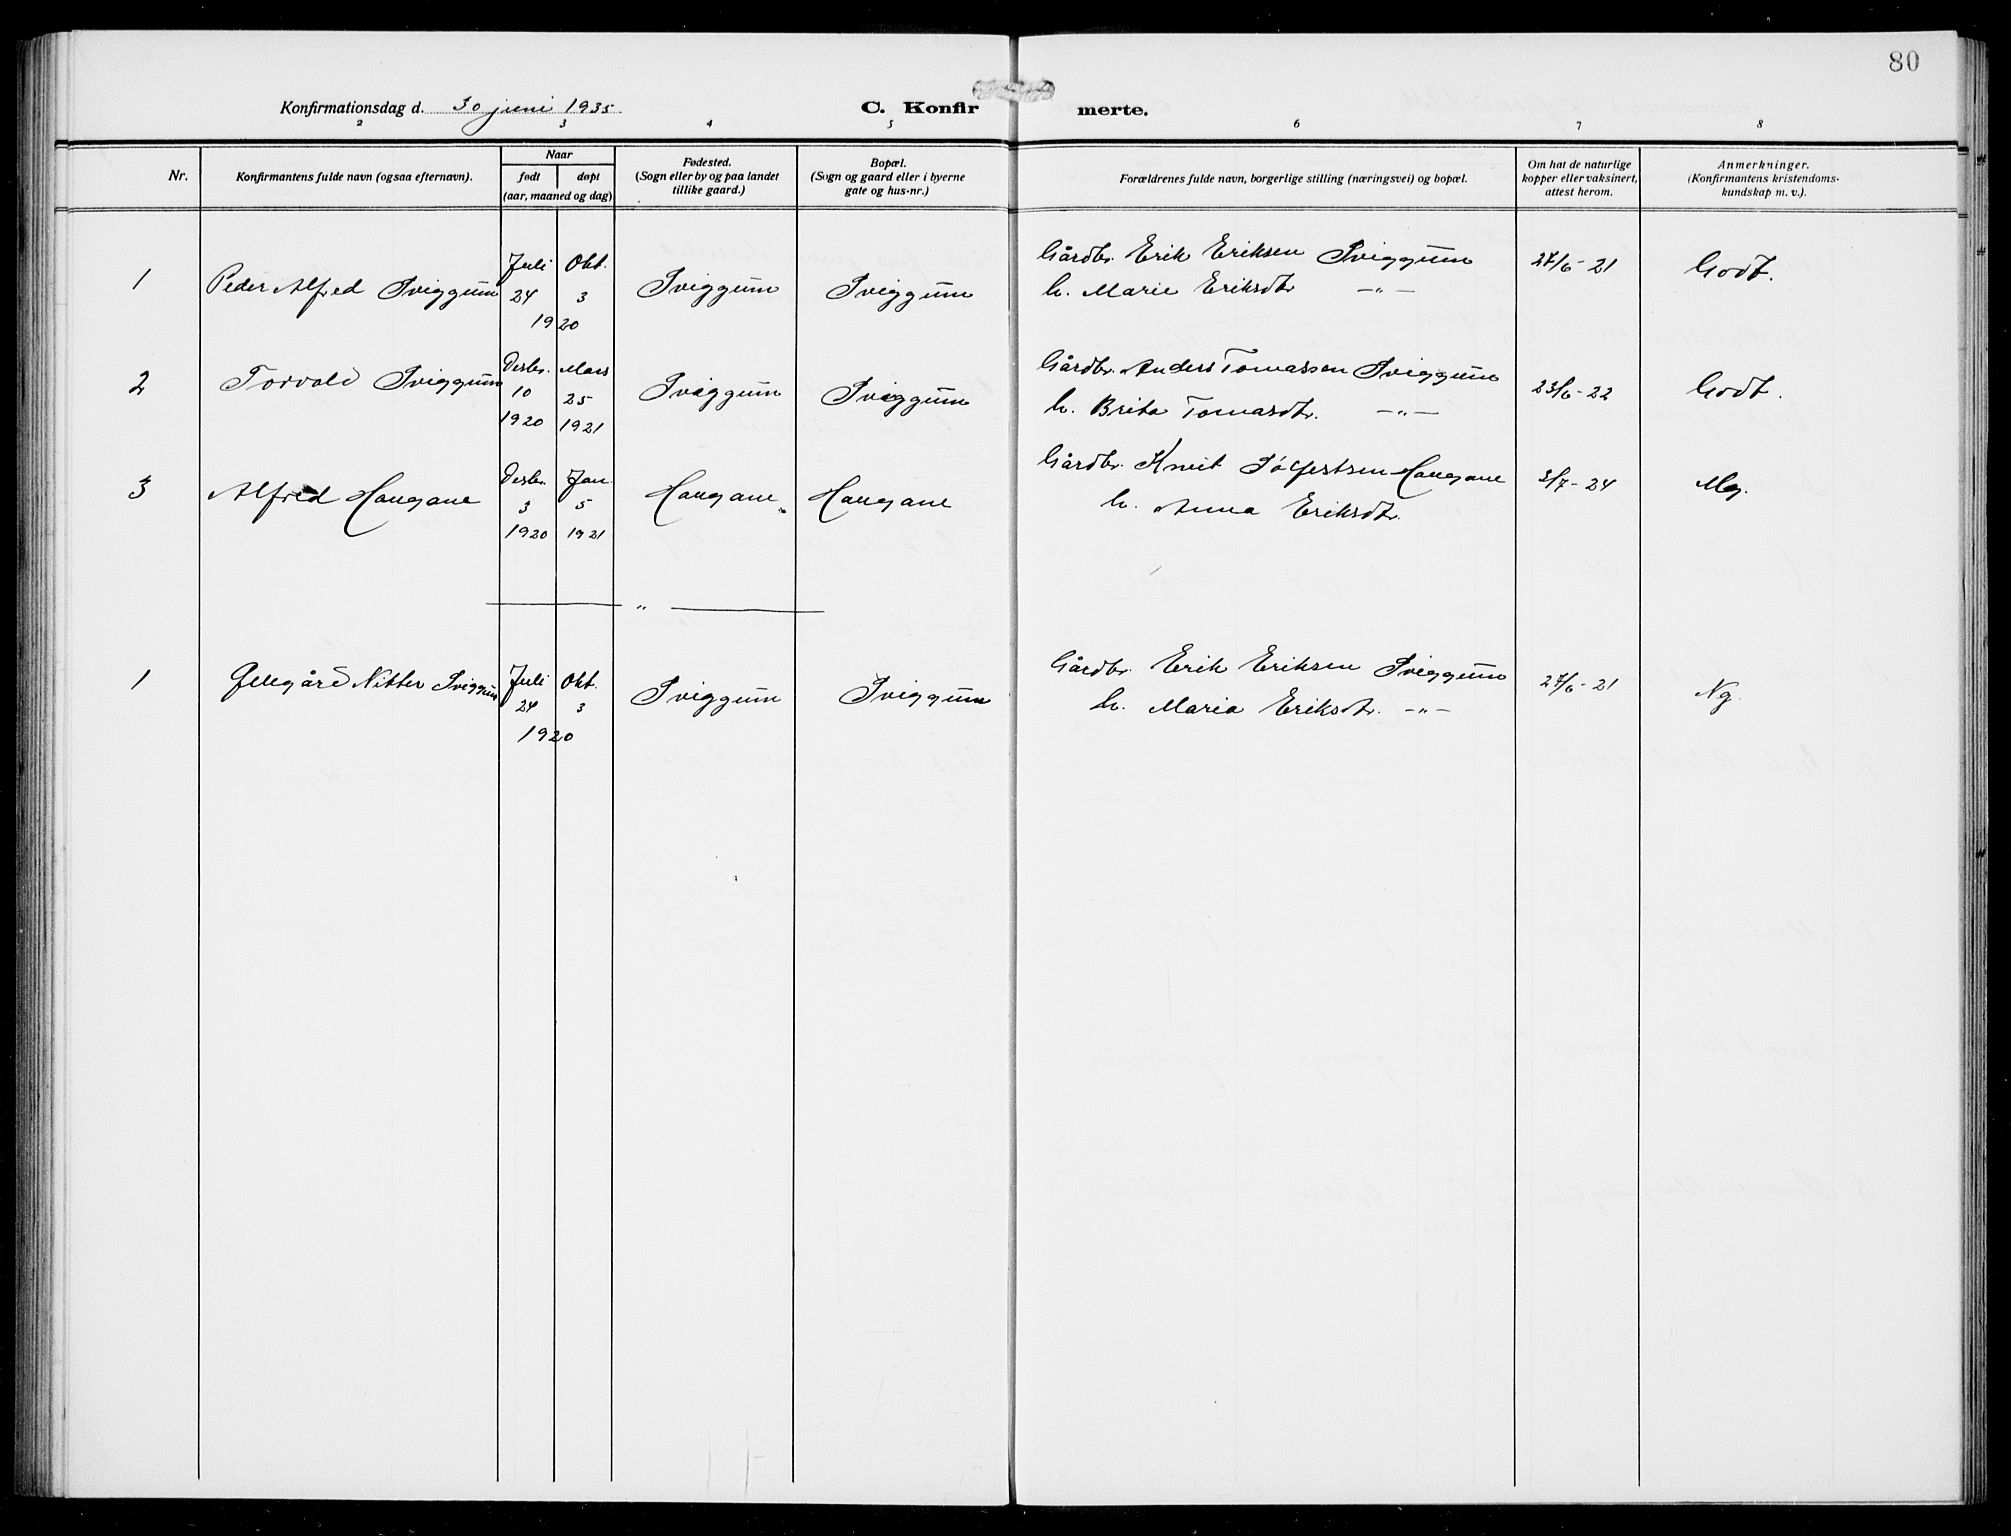 80
Konfirmationsdag d. 30 juni 1935
C. Konfirmerte.
2 3 4 5 6 7 8
Nr.
Konfirmantens fulde navn (ogsaa efternavn).
Naar
født døpt
(aar, maaned og dag)
Fødested.
(Sogn eller by og paa landet
tillike gaard.)
Bopæl.
(Sogn og gaard eller i byerne
gate og hus-nr.)
Forældrenes fulde navn, borgerlige stilling (næringsvei) og bopæl.
Om hat de naturlige
kopper eller vaksinert,
attest herom.
Anmerkninger.
(Konfirmantens kristendoms-
kundskap m. v.).
1 Peder Alfred Sviggum
Juli Okt.
24 3
1920
Sviggum Sviggum
Gårdbr. Erik Eriksen Sviggum
h. Marie Eriksdtr —"—
27/6-21 Godt.
2 Torvald Sviggum
Desbr. Mars
10 25
1920 1921
Sviggum Sviggum
Gårdbr. Anders Tomassen Sviggum
h. Brita Tomasdtr. —"—
23/6-22 Godt.
3 Alfred Haugane
Desbr. Jan
3 5
1920 1921
Haugane Haugane
Gårdbr. Knut Haugane
h. Anna Eriksdtr.
3/7-24 Mg.
—"—
1 Nitter Sviggum
Juli Okt.
24 3
1920
Sviggum Sviggum
Gårdbr. Erik Eriksen Sviggum
h. Maria Eriksdtr. —"—
27/6-21 Ng.